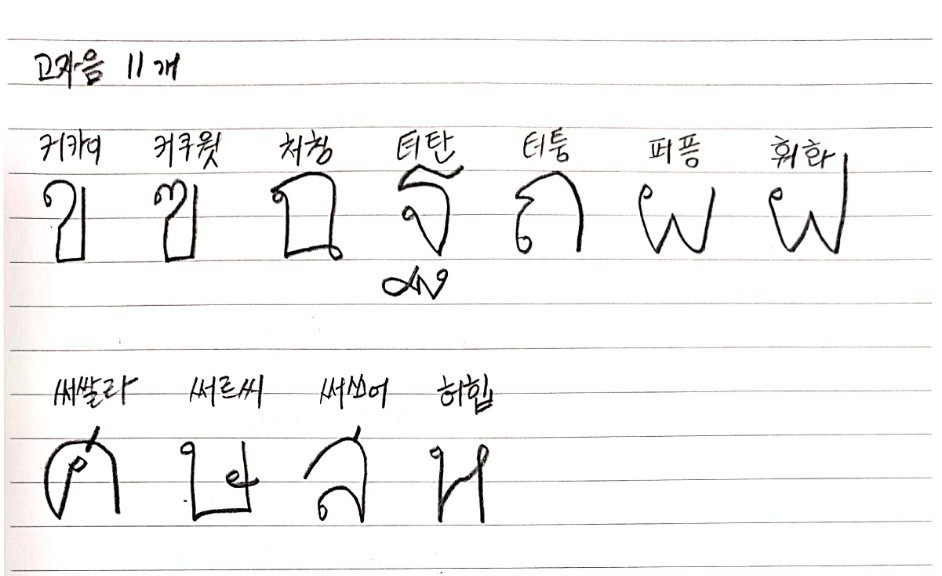 고자음 11개
커카이 커쿠웟 처칭 터탄 터퉁 퍼픙 훠화
ข ฃ ฉ ฐ ถ ผ ฝ
써쌀라 써르씨 써쓰어 허힙
ศ ษ ส ห